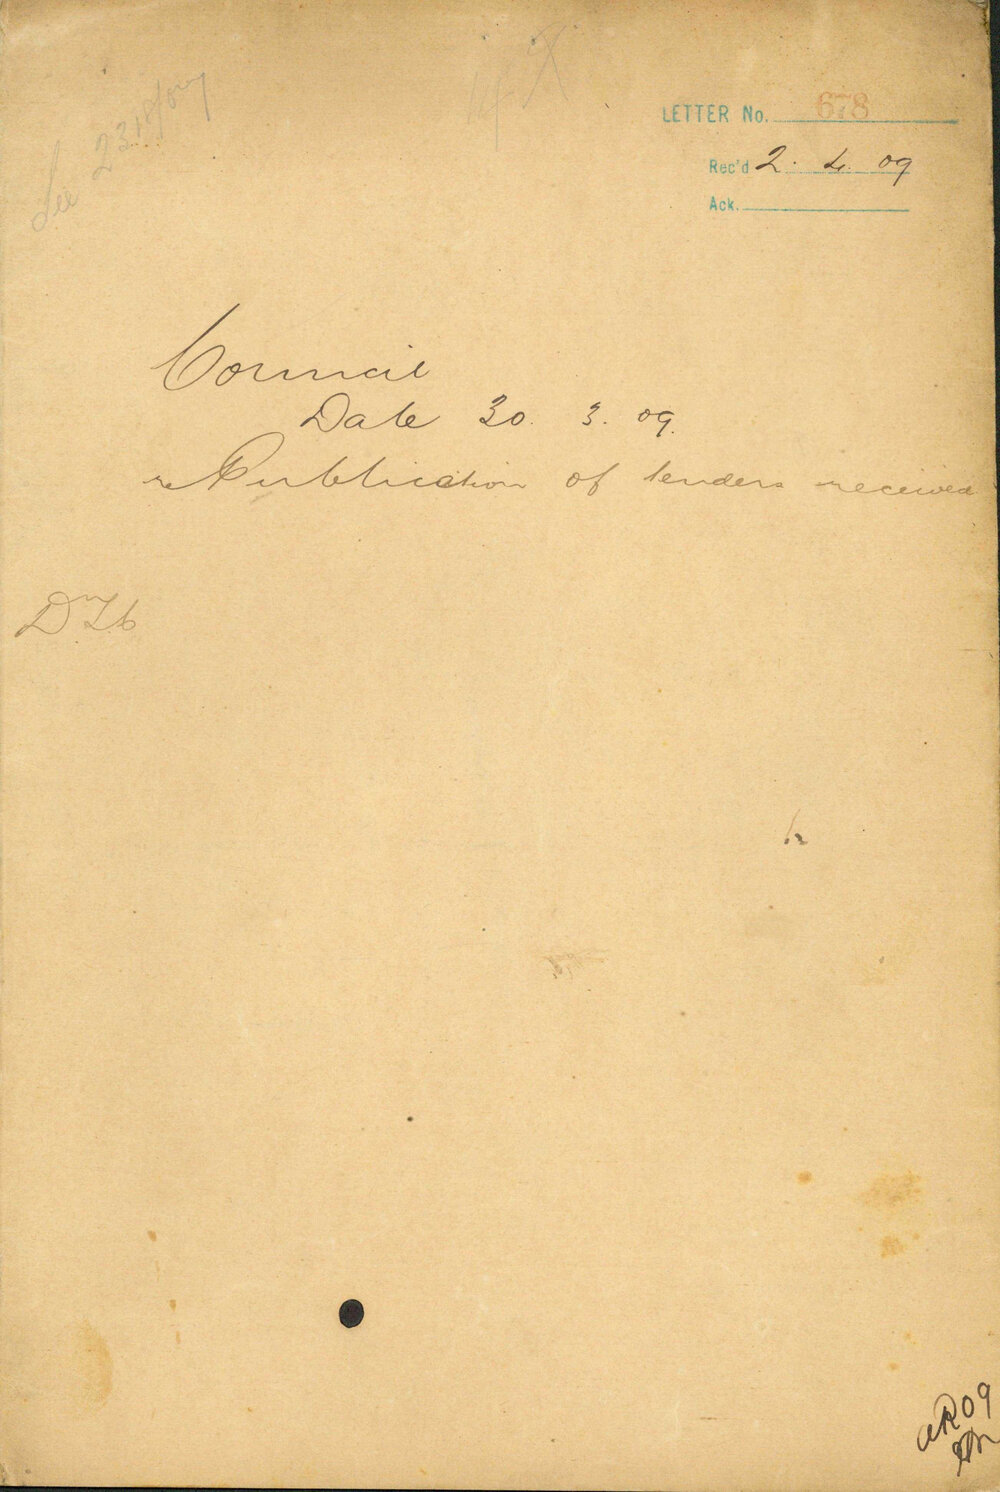 See 2318/09
LETTER No. 678
Rec'd 2. 4. 09
Ack.
Council
Date 30. 3. 09.
re Publication of tenders received